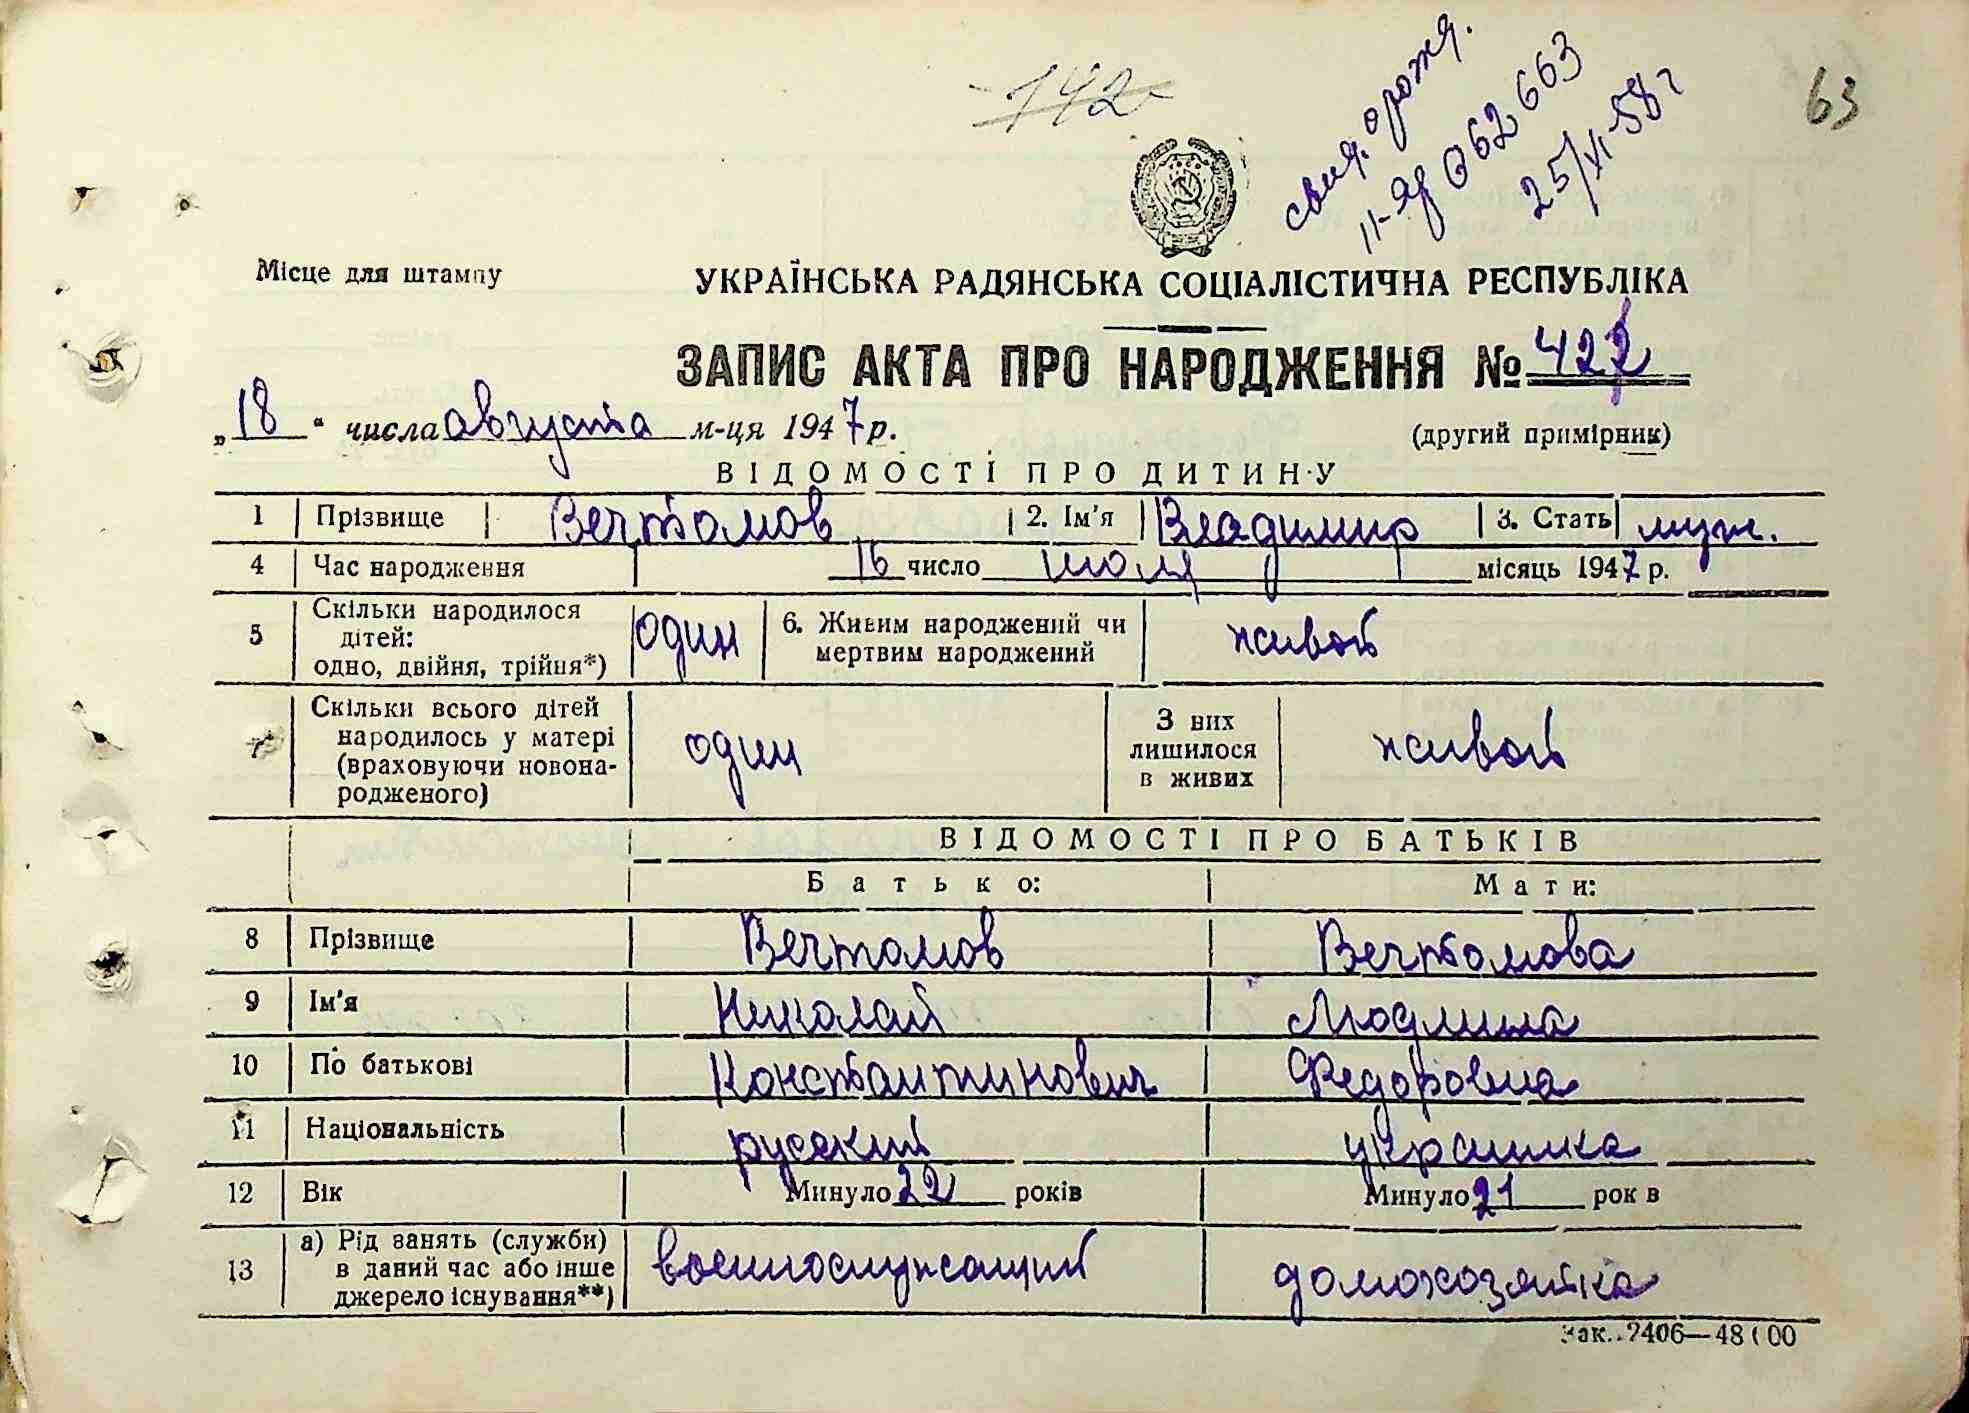 142
63
свид. о рожд.
II-ЯД 062663
25/XI-58г
Місце для штампу
УКРАЇНСЬКА РАДЯНСЬКА СОЦІАЛІСТИЧНА РЕСПУБЛІКА
ЗАПИС АКТА ПРО НАРОДЖЕННЯ № 422
„18“ числа августа м-ця 1947 р.
(другий примірник)
ВІДОМОСТІ ПРО ДИТИНУ
1 Прізвище Вечтомов 2. Ім'я Владимир 3. Стать муж.
4 Час народження 16 число июля місяць 1947 р.
5 Скільки народилося дітей: одно, двійня, трійня*) один 6. Живим народжений чи мертвим народжений живой
7 Скільки всього дітей народилось у матері (враховуючи новонародженого) один З них лишилося в живих живой
ВІДОМОСТІ ПРО БАТЬКІВ
Батько: Мати:
8 Прізвище Вечтомов Вечтомова
9 Ім'я Николай Людмила
10 По батькові Константинович Федоровна
11 Національність русский украинка
12 Вік Минуло 22 років Минуло 21 рок в
13 а) Рід занять (служби) в даний час або інше джерело існування**) военнослужащий домохозяйка
Зак. 2406—48 000